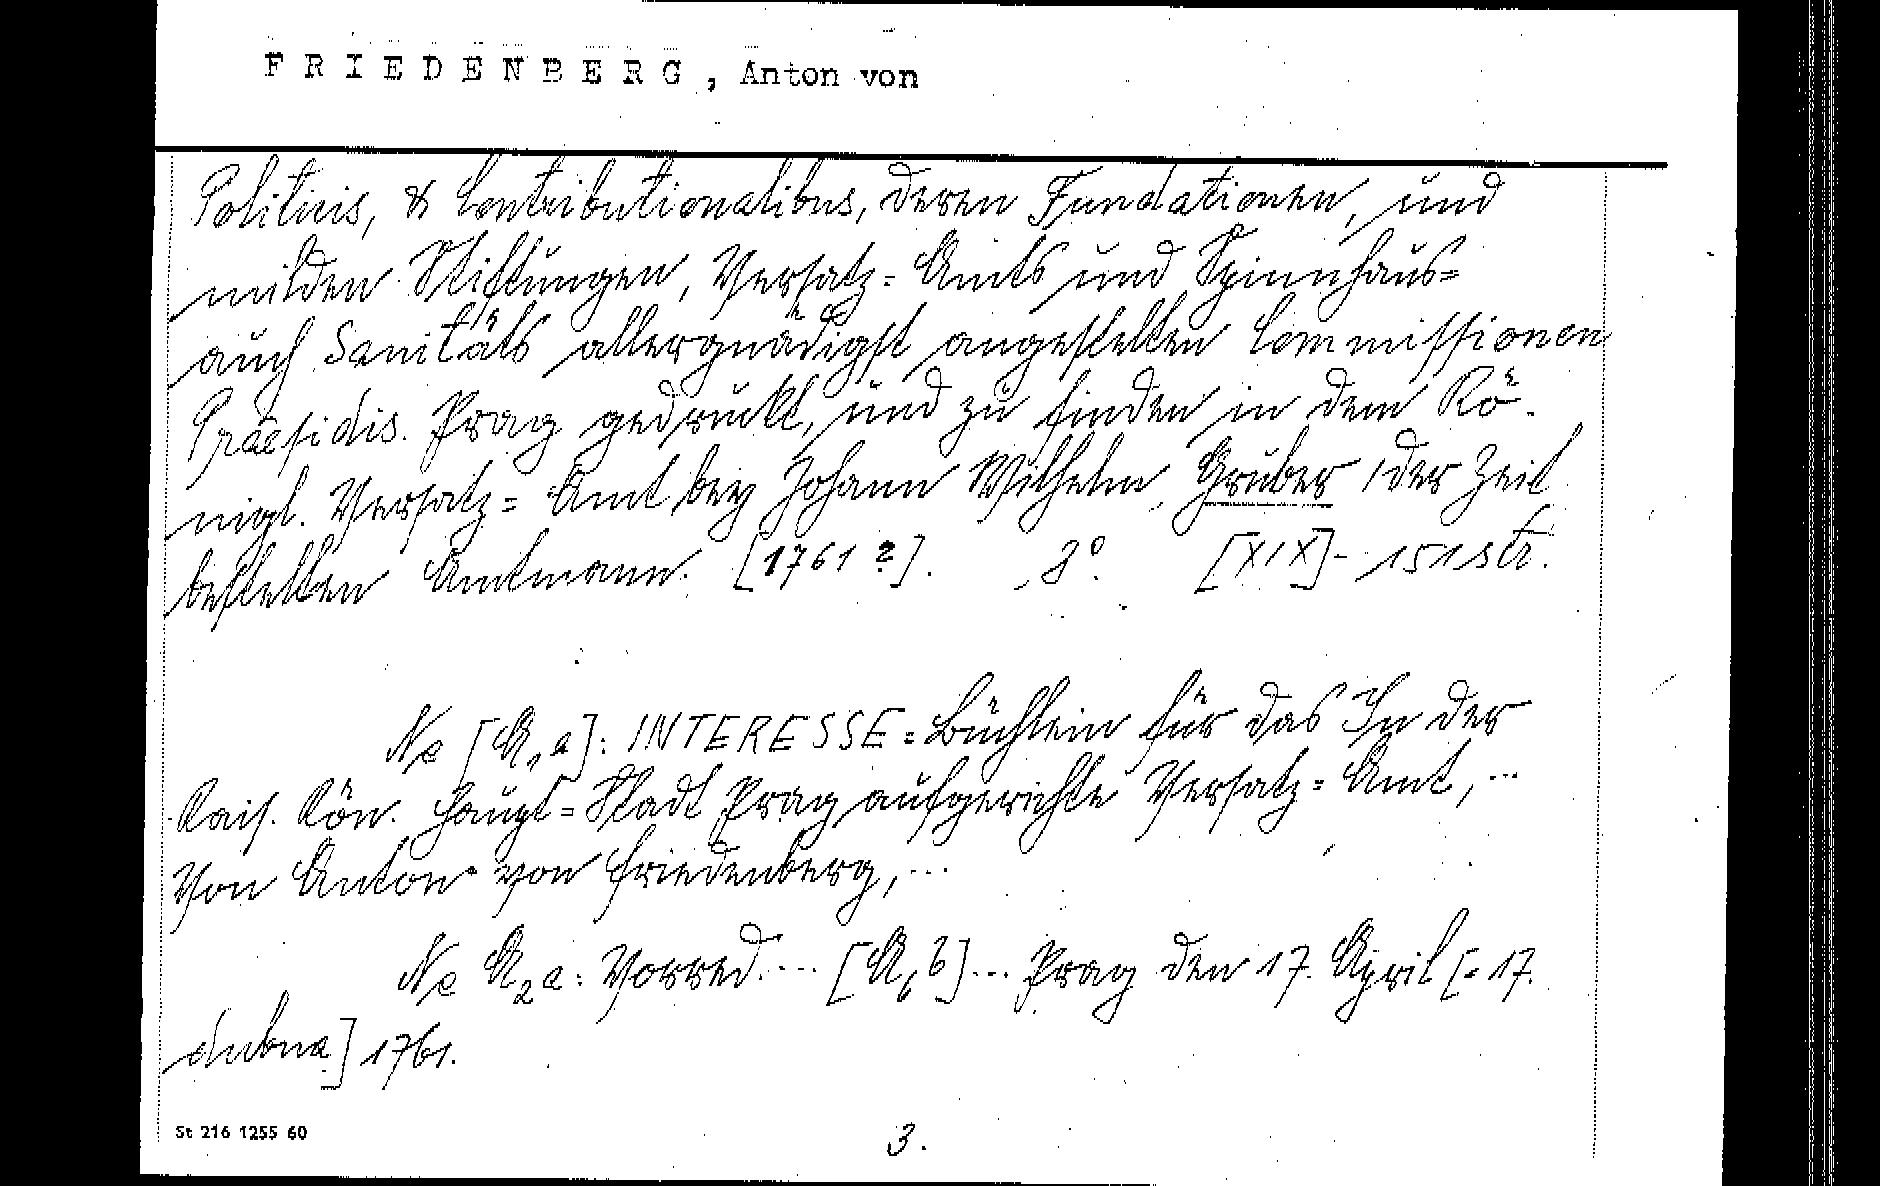 FRIEDENBERG, Anton von
Politicis, & Contributionalibus, deren Fundationen, und
milden Stiftungen, Versatz= Amts und Spinnhaus=
auch Sanitäts allergnädigst angestelten Commissionen
Praesidis. Prag gedruckt, und zu finden in dem Kö-
nigl. Versatz= Amt bey Johann Wilhelm, Gruber / der Zeit
bestelten Amtmann. [1761 ?]. 8°. [XIX]- 151 str.
Na [A1a]: INTERESSE=Büchlein für das In der
Kais. Kön. Haupt=Stadt Prag aufgerichte Versatz= Amt,...
Von Anton von Friedenberg,...
Na A2a: Vorred.... [A6b]... Prag den 17. April [=17.
dubna] 1761.
St 216 1255 60
3.